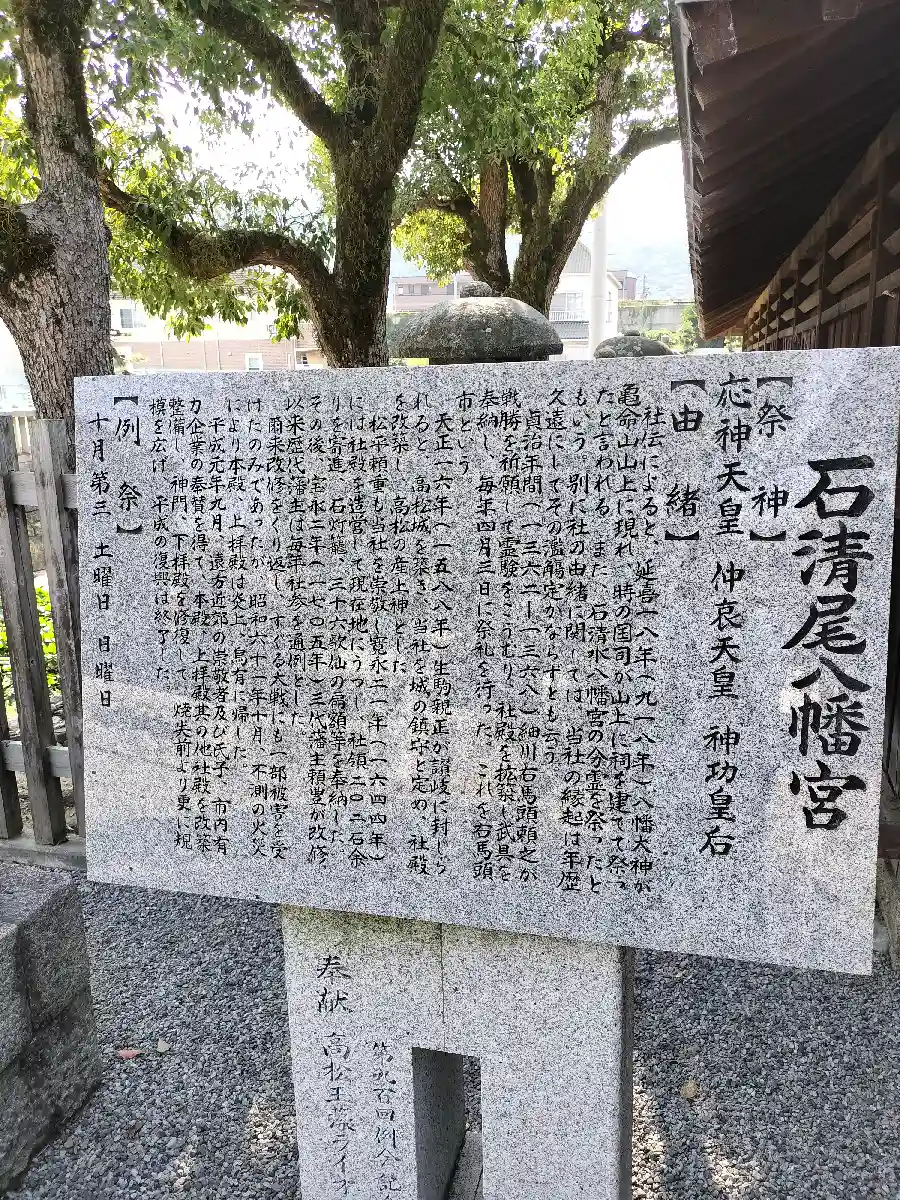 石清尾八幡宮
【祭神】
応神天皇 仲哀天皇 神功皇后
【由緒】
社伝によると、延喜一八年(九一八年)八幡大神が
亀命山山上に現れ、時の国司が山上に祠を建てて祭っ
たと言われる。また、石清水八幡宮の分霊を祭ったと
もいう。別に社の由緒に関しては、当社の縁起は年歴
久遠にしてその濫觴定かならずとも云う。
貞治年間(一三六二―一三六八)細川右馬頭頼之が
戦勝を祈願して霊験をこうむり、社殿を拡築し武具を
奉納し、毎年四月三日に祭礼を行った。これを右馬頭
市という。
天正一六年(一五八八年)生駒親正が讃岐に封じら
れると、高松城を築き、当社を城の鎮守と定め、社殿
を改築し、高松の産土神とした。
松平頼重も当社を崇敬し寛永二一年(一六四四年)
には社殿を造営して現在地にうつし、社領二〇二石余
りを寄進、石灯籠、三十六歌仙の扁額等を奉納した。
その後、宝永二年(一七〇五年)三代藩主頼豊が改修
以来歴代藩主は毎年社参を通例とした。
爾来改修をくり返し、すぐる大戦にも一部被害を受
けたのみであったが、昭和六十一年十月、不測の火災
により本殿、上拝殿は炎上、烏有に帰した。
平成元年九月、遠方近郊の崇敬者及び氏子、市内有
力企業の奉賛を得て、本殿、上拝殿其の他社殿を改築
整備し、神門、下拝殿を修復して焼失前より更に規
模を広げ、平成の復興は終了した。
【例祭】
十月第三 土曜日 日曜日
奉献 高松玉藻ライ